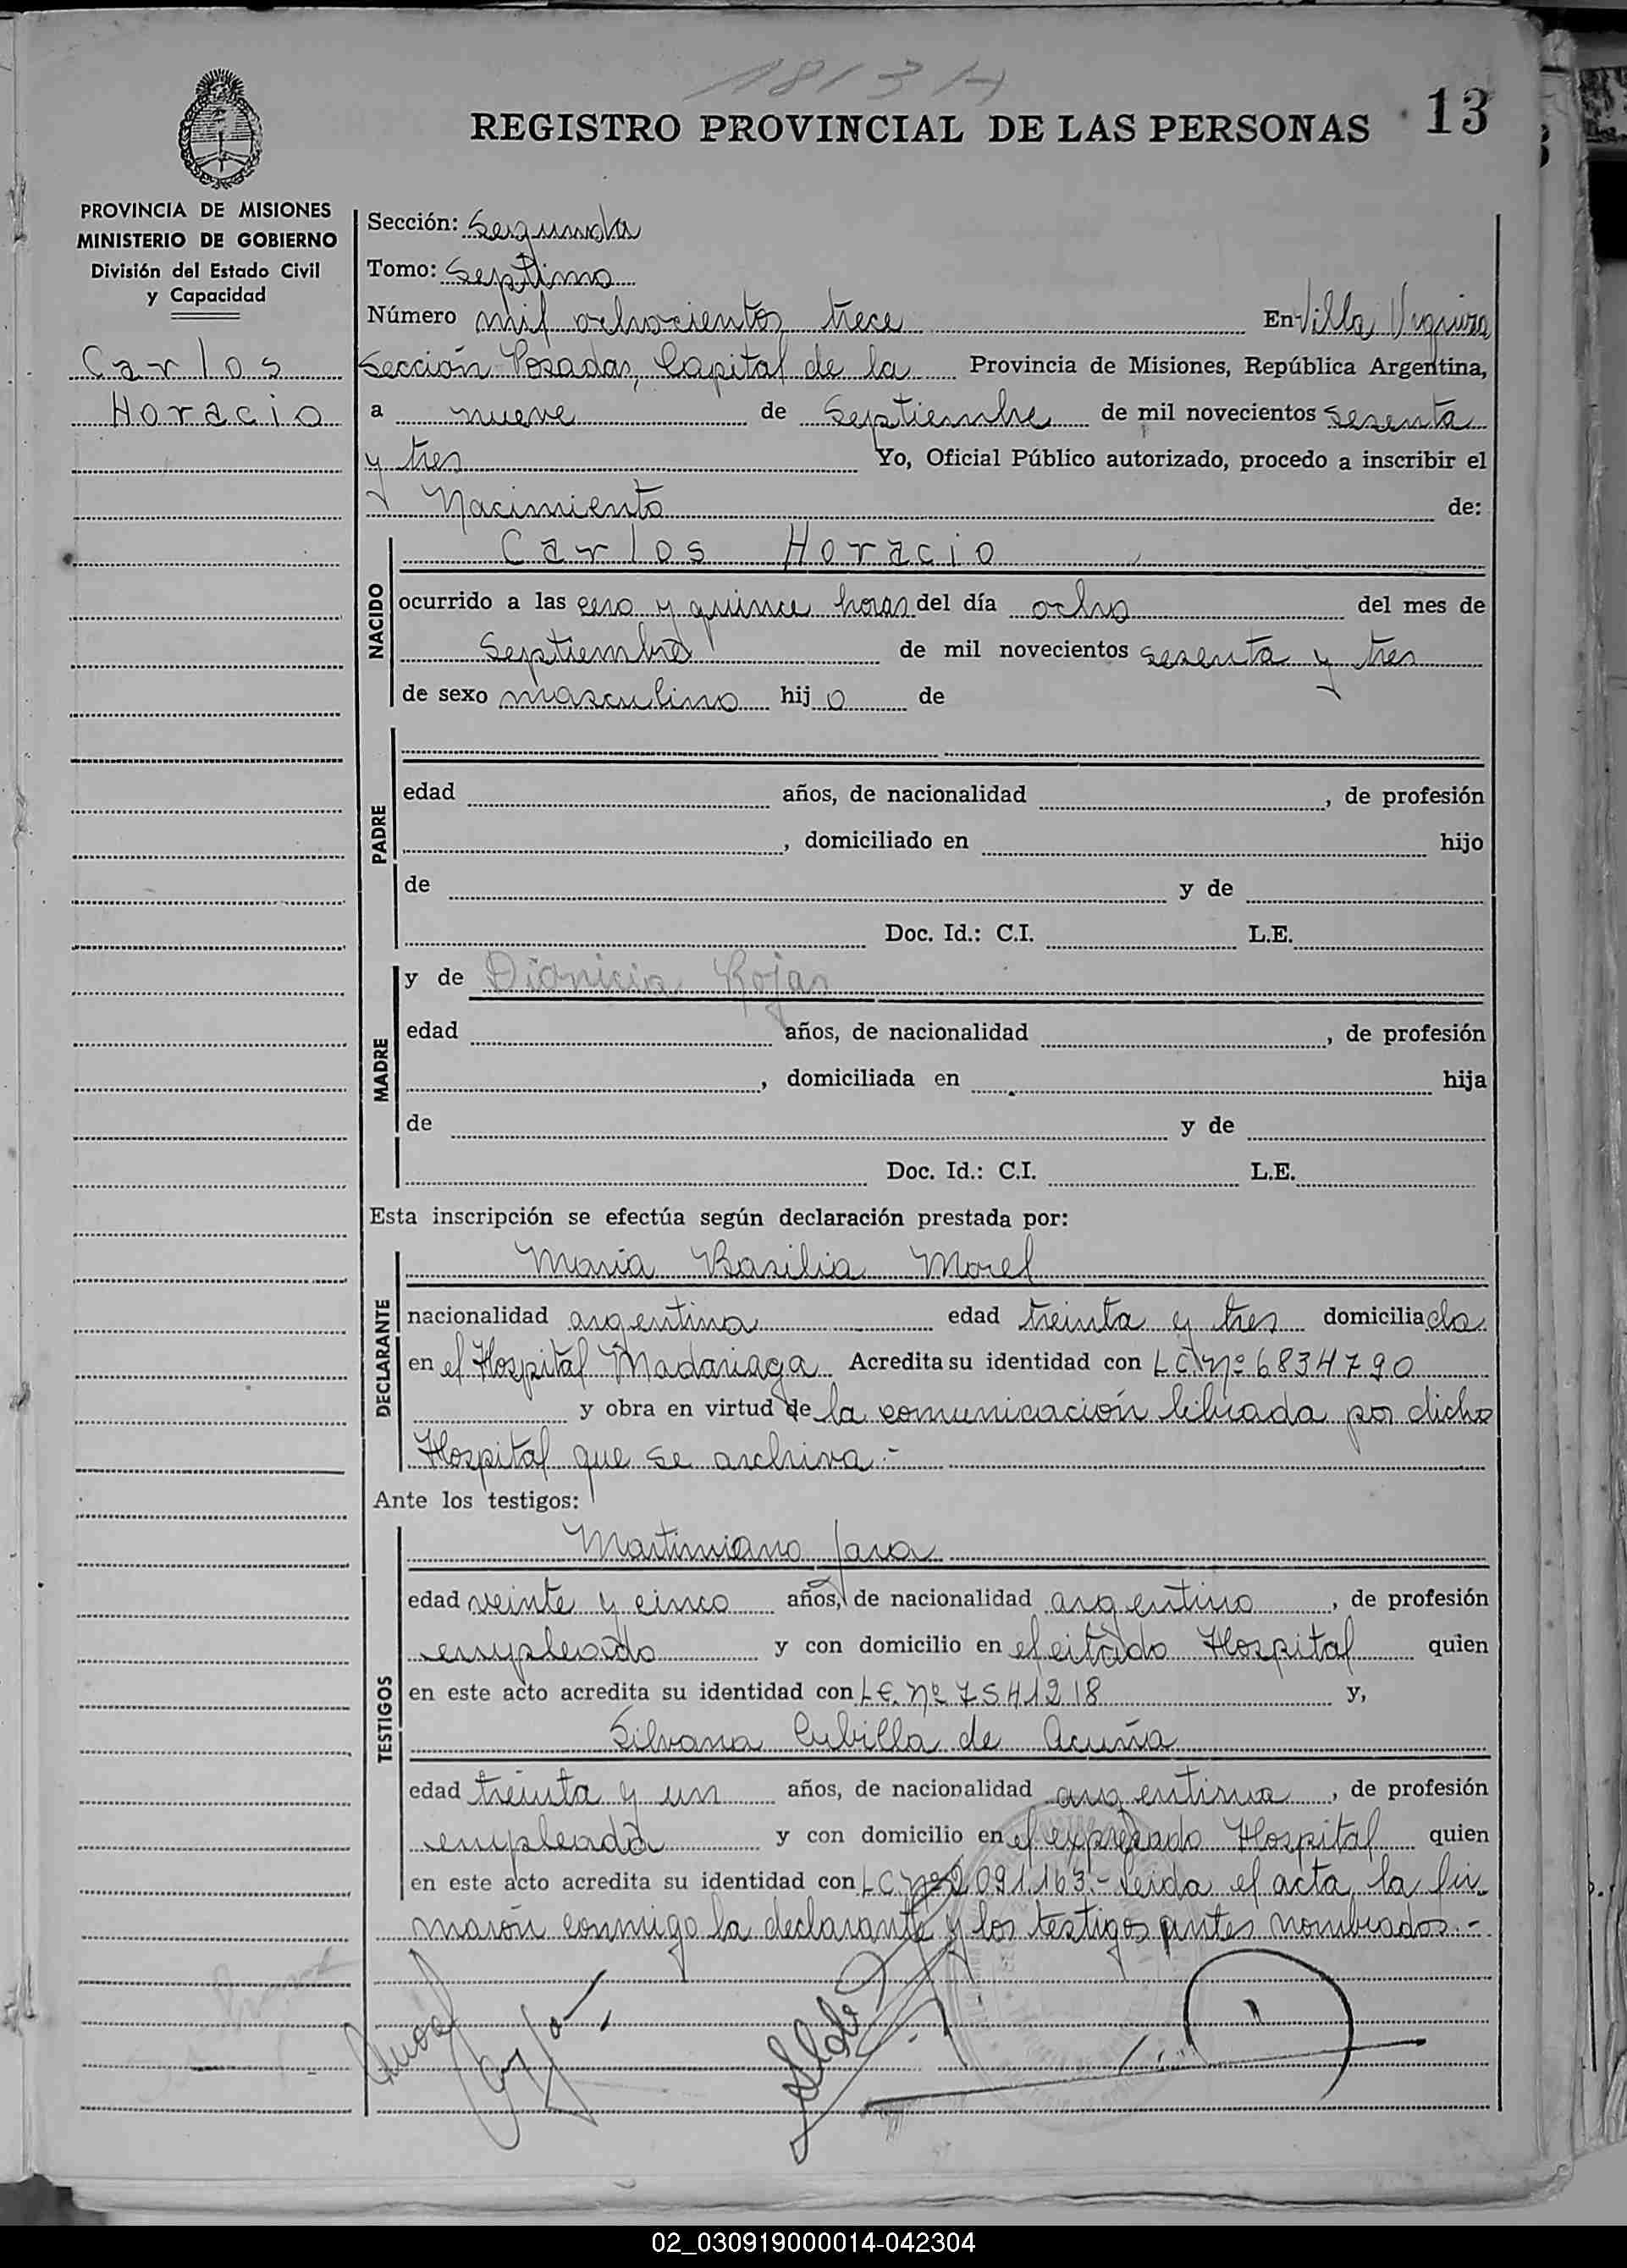 1813 H
REGISTRO PROVINCIAL DE LAS PERSONAS 13
PROVINCIA DE MISIONES
MINISTERIO DE GOBIERNO
División del Estado Civil
y Capacidad
Carlos
Horacio
Sección: Segunda
Tomo: Septimo
Número mil ochocientos trece En Villa Urquiza
Sección Posadas, Capital de la Provincia de Misiones, República Argentina,
a nueve de Septiembre de mil novecientos sesenta
y tres Yo, Oficial Público autorizado, procedo a inscribir el
Nacimiento de:
NACIDO
Carlos Horacio
ocurrido a las cero y quince horas del día ocho del mes de
Septiembre de mil novecientos sesenta y tres
de sexo masculino hijo de
PADRE
edad años, de nacionalidad , de profesión
, domiciliado en hijo
de y de
Doc. Id.: C.I. L.E.
MADRE
y de Dionicia Rojas
edad años, de nacionalidad , de profesión
, domiciliada en hija
de y de
Doc. Id.: C.I. L.E.
Esta inscripción se efectúa según declaración prestada por:
DECLARANTE
María Basilia Morel
nacionalidad argentina edad treinta y tres domiciliada
en el Hospital Madariaga Acredita su identidad con L.C. Nº 6834790
y obra en virtud de la comunicación librada por dicho
Hospital que se archiva.-
Ante los testigos:
TESTIGOS
Martiniano Jara
edad veinte y cinco años, de nacionalidad argentino, de profesión
empleado y con domicilio en el citado Hospital quien
en este acto acredita su identidad con L.E. Nº 7541218 y,
Silvana Cubilla de Acuña
edad treinta y un años, de nacionalidad argentina, de profesión
empleada y con domicilio en el expresado Hospital quien
en este acto acredita su identidad con L.C. Nº 2091.163.- Leida el acta, la fir-
maron conmigo la declarante y los testigos antes nombrados.-
02_030919000014-042304